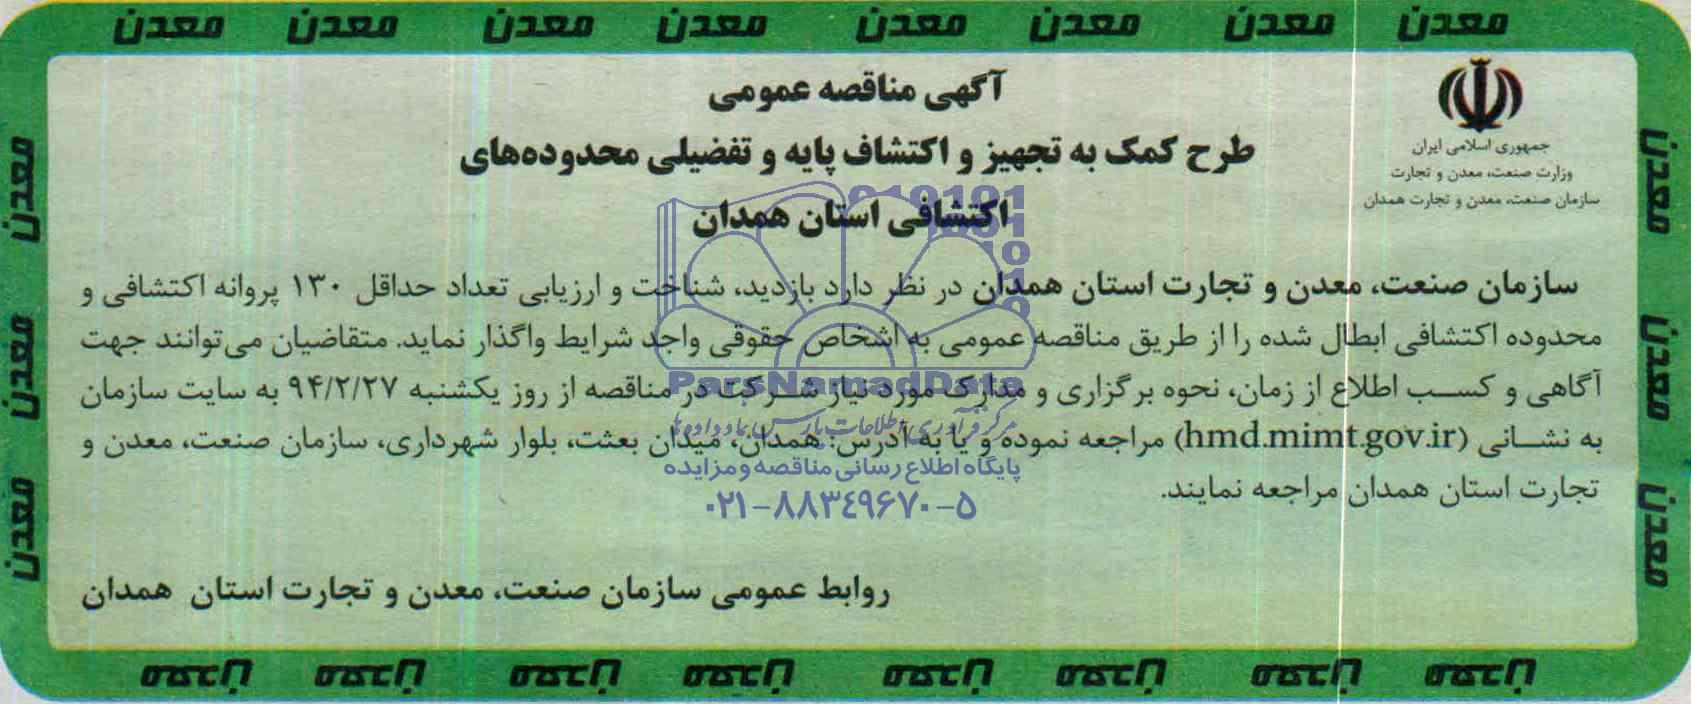 معدن معدن معدن معدن معدن معدن معدن معدن
جمهوری اسلامی ایران
وزارت صنعت، معدن و تجارت
سازمان صنعت، معدن و تجارت همدان
آگهی مناقصه عمومی
طرح کمک به تجهیز و اکتشاف پایه و تفضیلی محدوده‌های
اکتشافی استان همدان
سازمان صنعت، معدن و تجارت استان همدان در نظر دارد بازدید، شناخت و ارزیابی تعداد حداقل ۱۳۰ پروانه اکتشافی و
محدوده اکتشافی ابطال شده را از طریق مناقصه عمومی به اشخاص حقوقی واجد شرایط واگذار نماید. متقاضیان می‌توانند جهت
آگاهی و کسب اطلاع از زمان، نحوه برگزاری و مدارک مورد نیاز شرکت در مناقصه از روز یکشنبه ۹۴/۲/۲۷ به سایت سازمان
به نشانی (hmd.mimt.gov.ir) مراجعه نموده و یا به آدرس: همدان، میدان بعثت، بلوار شهرداری، سازمان صنعت، معدن و
تجارت استان همدان مراجعه نمایند.
روابط عمومی سازمان صنعت، معدن و تجارت استان همدان
ParsNamadData
مرکز فرآوری اطلاعات پارس نماد داده‌ها
پایگاه اطلاع رسانی مناقصه و مزایده
۰۲۱-۸۸۳۴۹۶۷۰-۵
معدن
معدن
معدن
معدن
معدن
معدن
معدن معدن معدن معدن معدن معدن معدن معدن